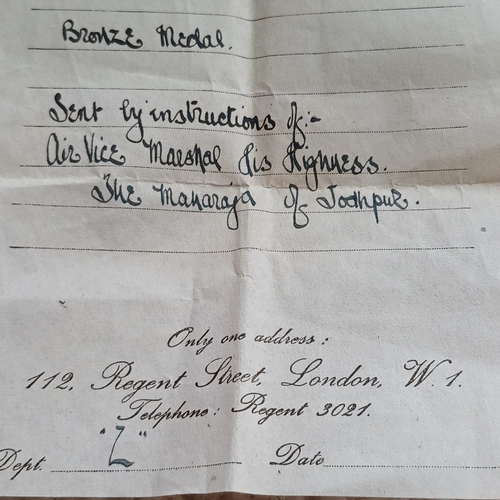 Bronze Medal.
Sent by instructions of:-
Air Vice Marshal His Highness.
The Maharaja of Jodhpur.
Only one address:
112, Regent Street, London, W. 1.
Telephone: Regent 3021.
Dept. "Z" Date